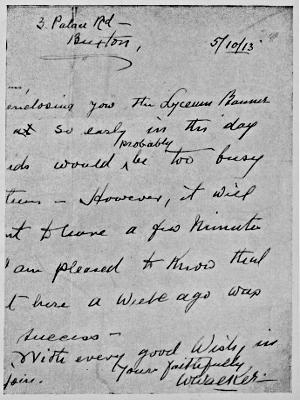 3. Palace Rd -
Buxton,
5/10/13
enclosing you the Lyceum Banner
at so early in the day
probably
would be too busy
- However, it will
to have a few minutes
am pleased to know that
here a Week ago was
success -
With every good Wish, in
Yours faithfully,
WWalker -